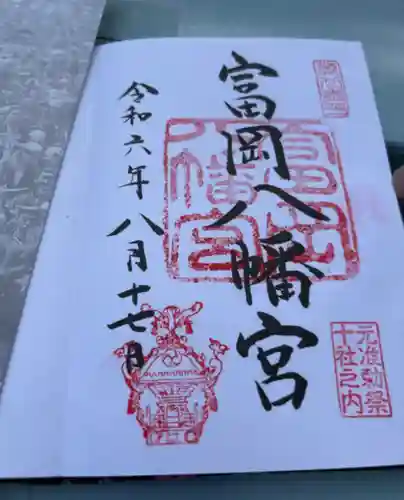 富岡八幡宮
令和六年八月十七日
富岡八幡宮
元准勅祭
十社之内